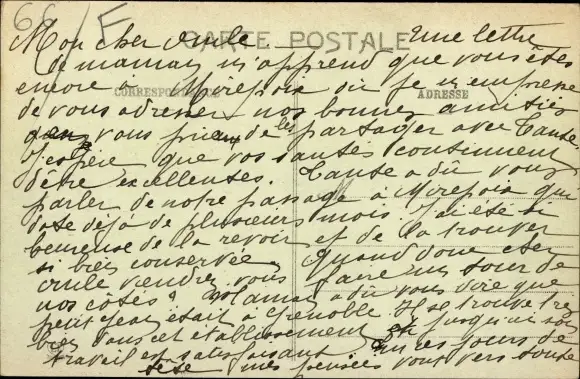 66 / F
CARTE POSTALE
CORRESPONDANCE
ADRESSE
Mon cher Emile. Une lettre
de maman m'apprend que vous êtes
encore à Mirepoix où je m'empresse
de vous adresser nos bonnes amitiés
vous priant de les partager avec Tante.
J'espère que vos santés continuent
d'être excellentes. Tante a dû vous
parler de notre passage à Mirepoix qui
date déjà de plusieurs mois. J'ai été si
heureuse de la revoir et de la trouver
si bien conservée. Quand donc cher
Emile viendrez vous faire un tour de
nos côtés? Maman a dû vous dire que
petit Jean était à Grenoble. Il se trouve très
bien dans cet établissement et jusqu'ici son
travail est satisfaisant. En ces jours de
fête mes pensées vont vers toute